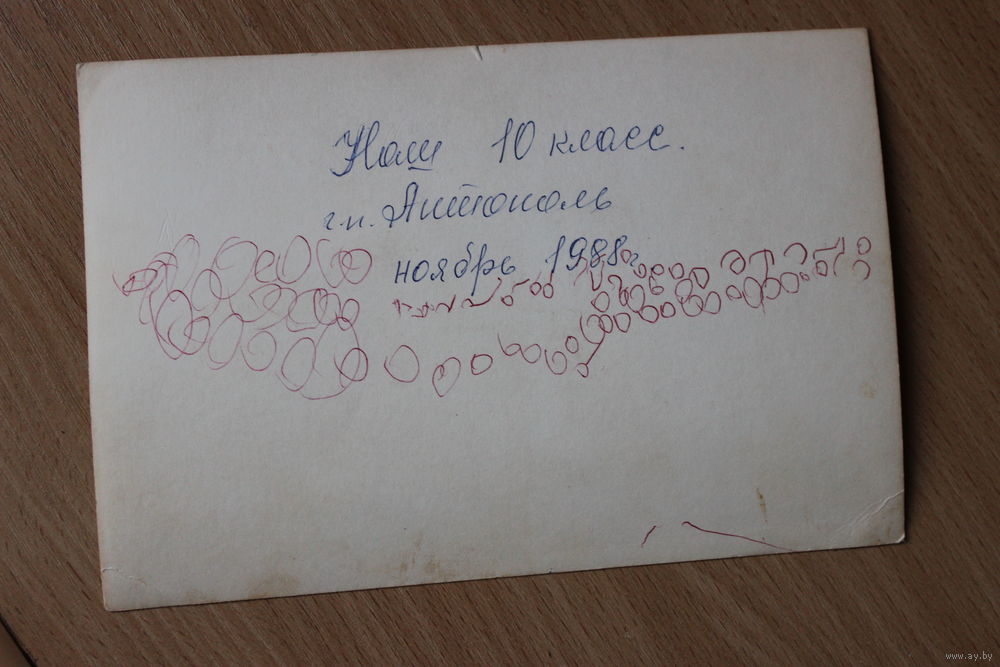 Наш 10 класс.
г.п. Антополь
ноябрь 1988г.
www.ay.by